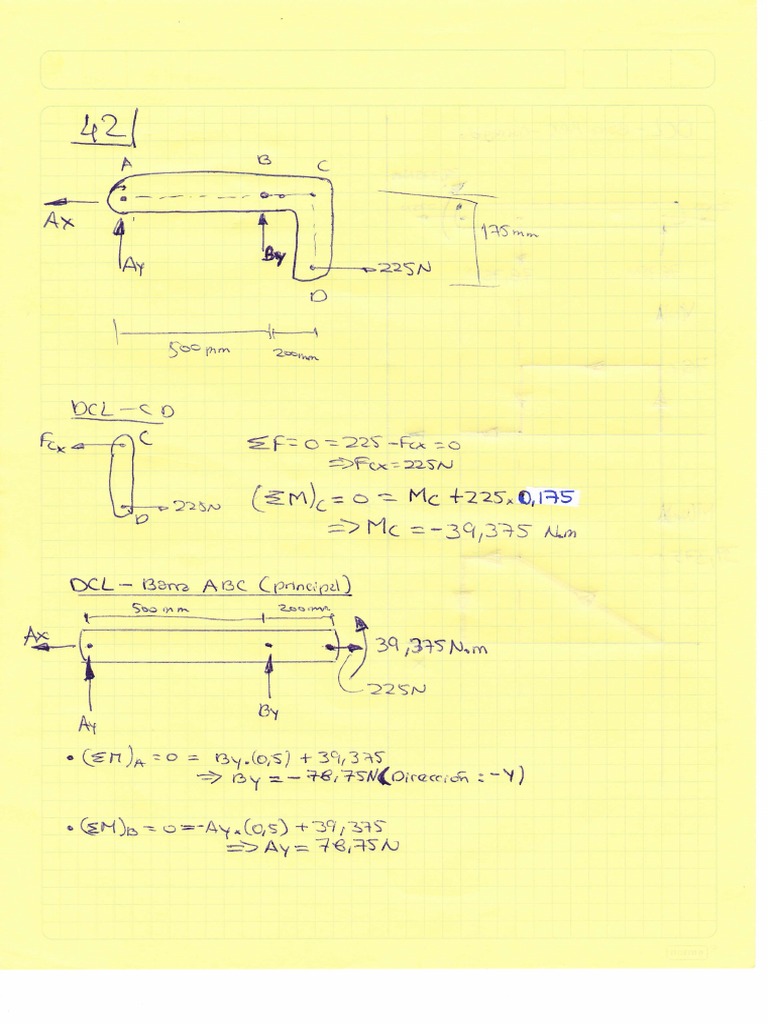 42
A B C
Ax
175mm
Ay By 225N
D
500mm 200mm
DCL - CD
Fcx C
ΣF=0=225-Fcx=0
⇒Fcx=225N
225N
D
(ΣM)C=0= Mc +225x0,175
⇒ Mc = -39,375 N.m
DCL - Barra ABC (principal)
500mm 200mm
Ax
39,375N.m
225N
Ay By
• (ΣM)A =0 = By.(0,5) + 39,375
⇒ By = -78,75N (Dirección: -Y)
• (ΣM)B = 0 =-Ayx(0,5) + 39,375
⇒ Ay = 78,75N